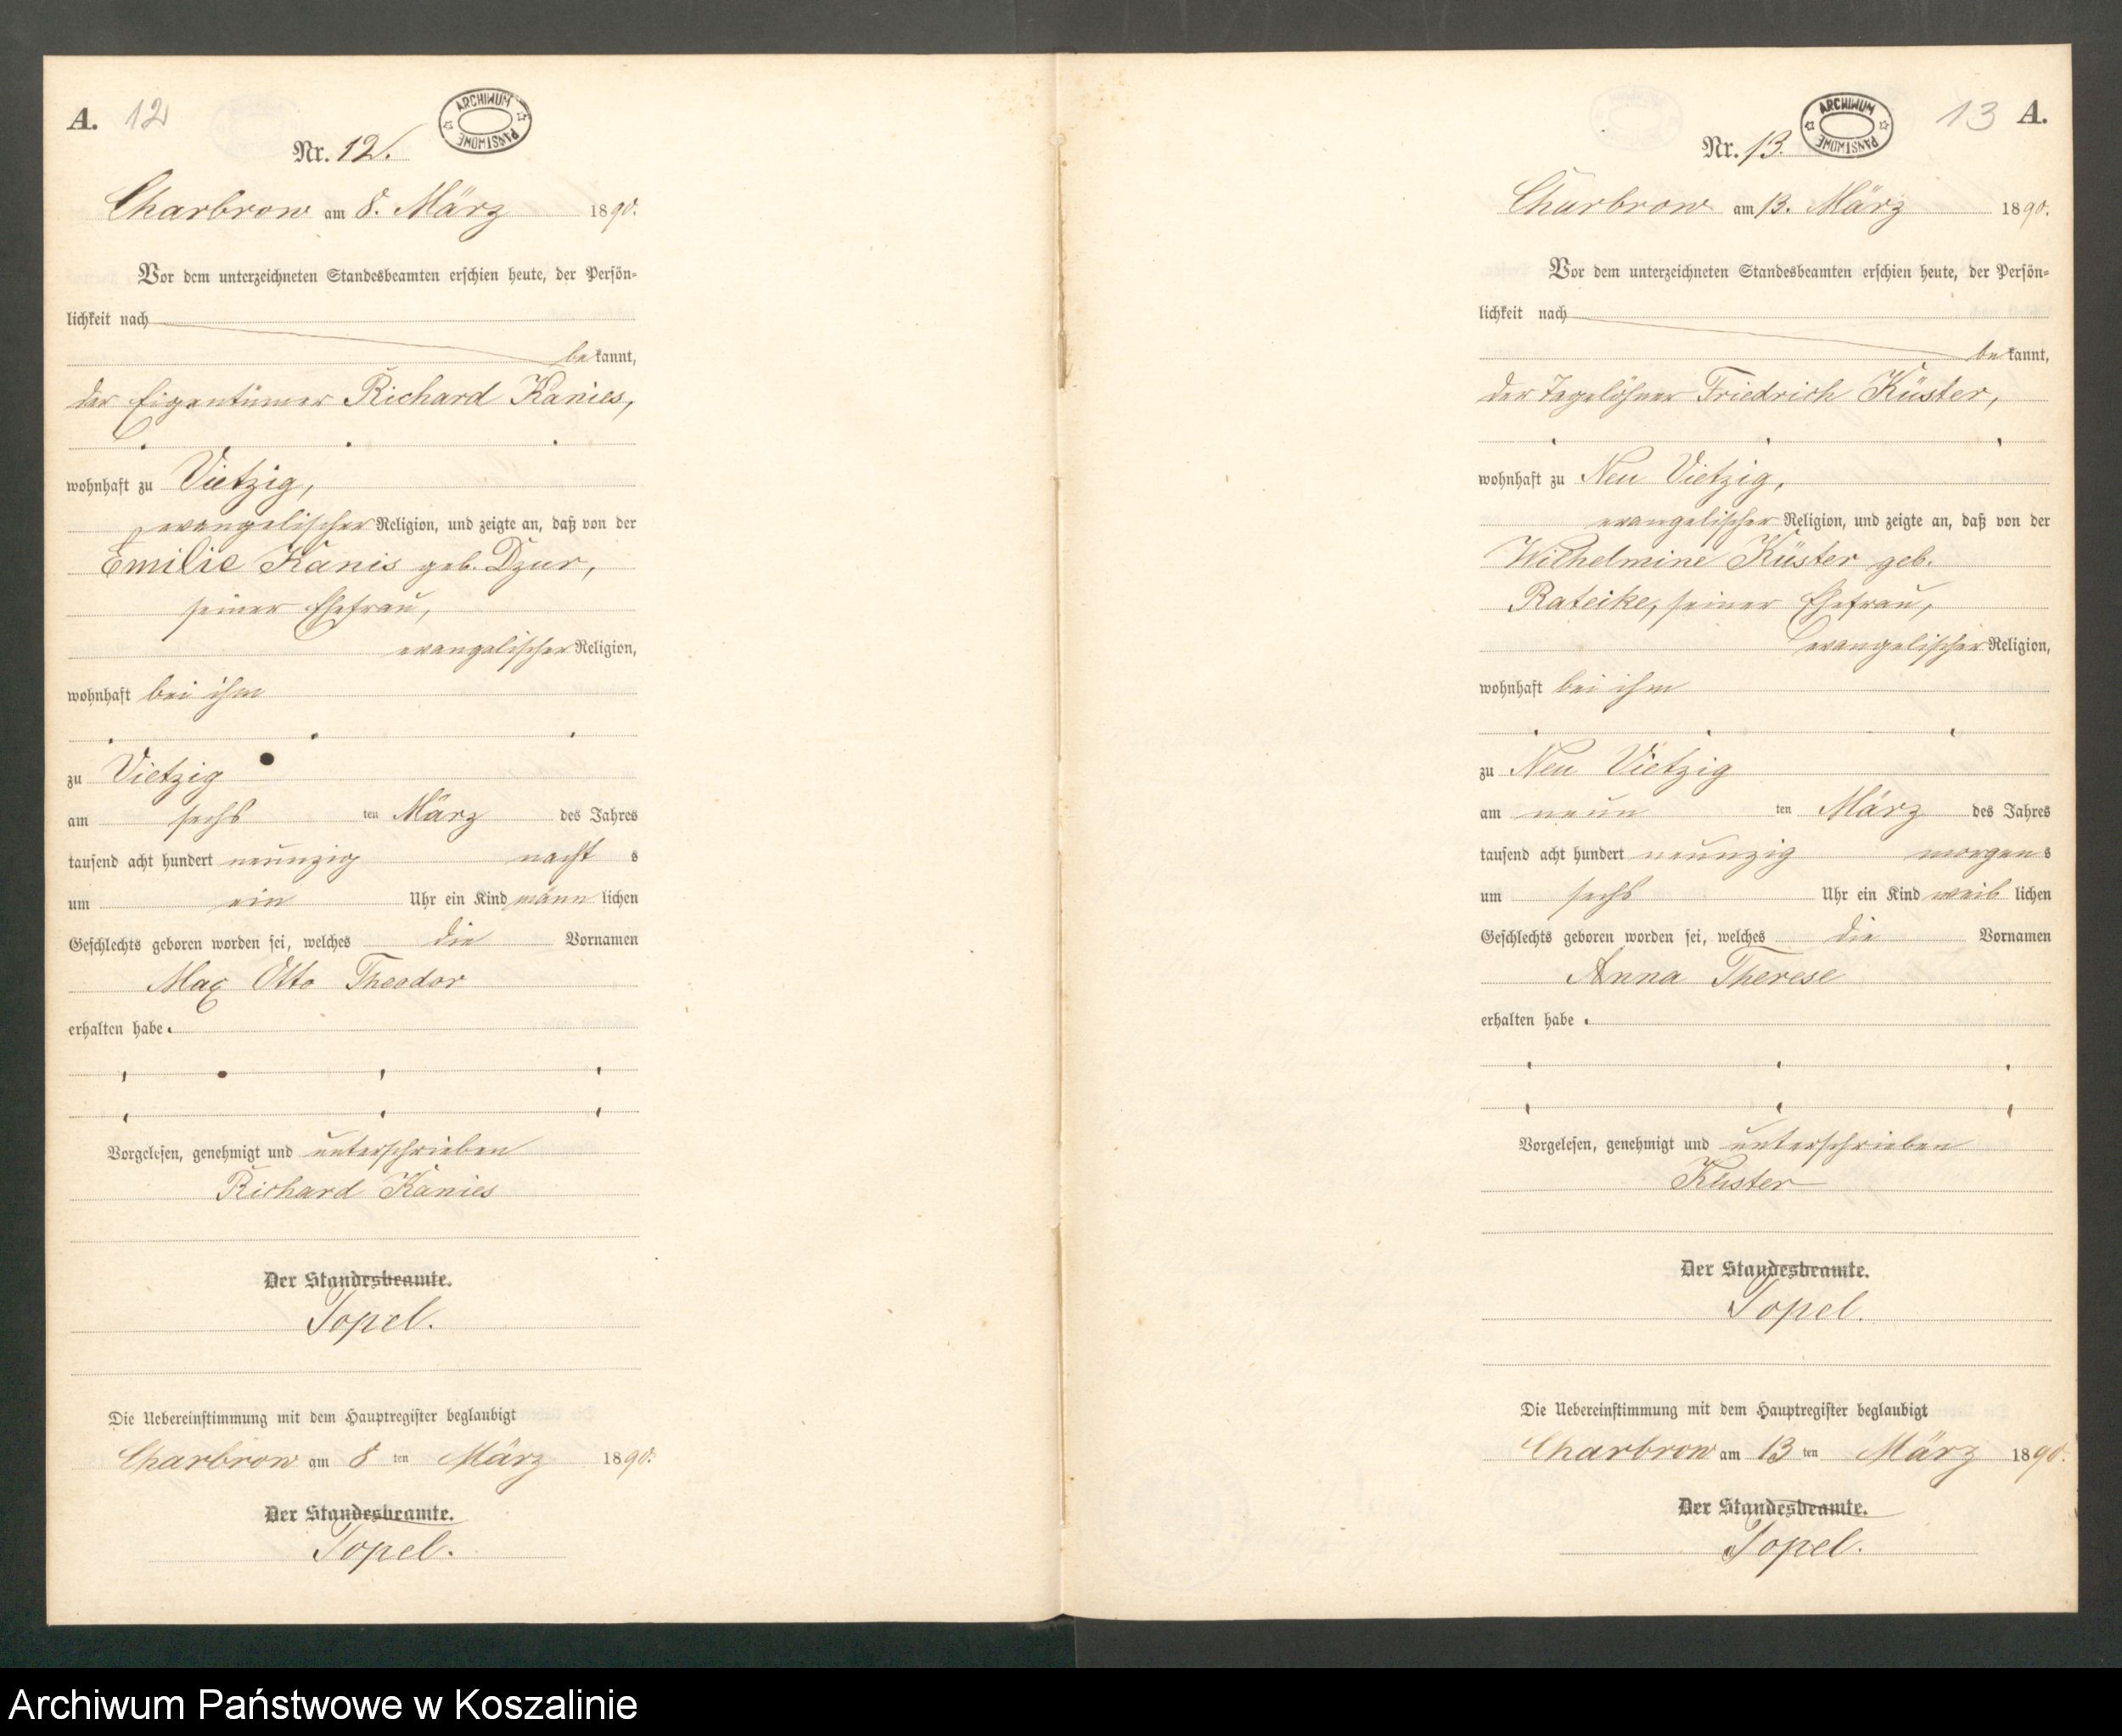 A. 12
ARCHIWUM PAŃSTWOWE
Nr. 12.
Charbrow am 8. März 1890.
Vor dem unterzeichneten Standesbeamten erschien heute, der Persön=
lichkeit nach
bekannt,
der Eigentümer Richard Kanies,
wohnhaft zu Vietzig,
evangelischer Religion, und zeigte an, daß von der
Emilie Kanis geb. Dzur,
seiner Ehefrau,
evangelischer Religion,
wohnhaft bei ihm
zu Vietzig
am sechs ten März des Jahres
tausend acht hundert neunzig nacht s
um ein Uhr ein Kind männ lichen
Geschlechts geboren worden sei, welches die Vornamen
Max Otto Theodor
erhalten habe.
Vorgelesen, genehmigt und unterschrieben
Richard Kanies
Der Standesbeamte.
Topel.
Die Uebereinstimmung mit dem Hauptregister beglaubigt
Charbrow am 8 ten März 1890.
Der Standesbeamte.
Topel.
13 A.
ARCHIWUM PAŃSTWOWE
Nr. 13.
Charbrow am 13. März 1890.
Vor dem unterzeichneten Standesbeamten erschien heute, der Persön=
lichkeit nach
bekannt,
der Tagelöhner Friedrich Küster,
wohnhaft zu Neu Vietzig,
evangelischer Religion, und zeigte an, daß von der
Wilhelmine Küster geb.
Rateike, seiner Ehefrau,
evangelischer Religion,
wohnhaft bei ihm
zu Neu Vietzig
am neun ten März des Jahres
tausend acht hundert neunzig morgens
um sechs Uhr ein Kind weib lichen
Geschlechts geboren worden sei, welches die Vornamen
Anna Therese
erhalten habe.
Vorgelesen, genehmigt und unterschrieben
Küster
Der Standesbeamte.
Topel.
Die Uebereinstimmung mit dem Hauptregister beglaubigt
Charbrow am 13 ten März 1890.
Der Standesbeamte.
Topel.
Archiwum Państwowe w Koszalinie